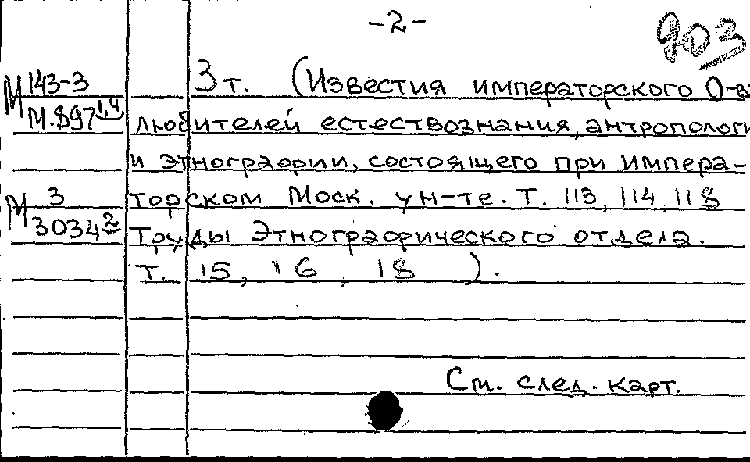 -2-
903
М 143-3
М.897 1,4
3 т. (Известия императорского О-ва
любителей естествознания, антропологи
и этнографии, состоящего при импера-
М 3
3034 2
торском Моск. ун-те. Т. 113, 114, 118
Труды Этнографического отдела.
Т. 15, 16, 18).
См. след. карт.